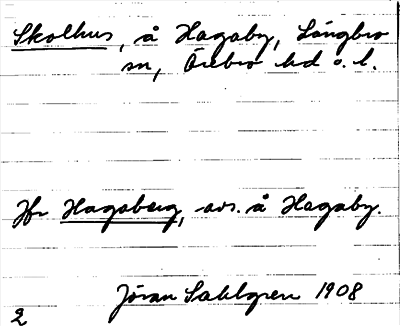 Skolhus, å Hagaby, Långbro
sn, Örebro hd o. l.
Jfr Hagaberg, avs. å Hagaby.
Jöran Sahlgren 1908
2